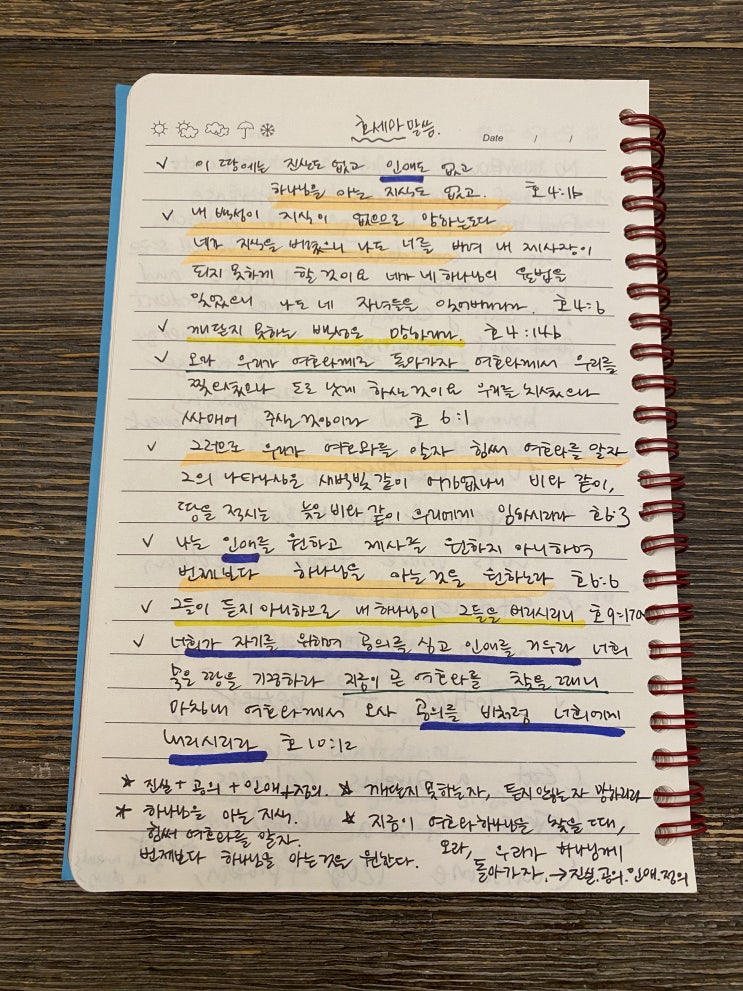 호세아 말씀.
Date / /
✓ 이 땅에는 진실도 없고 인애도 없고
하나님을 아는 지식도 없고. 호 4:1b
✓ 내 백성이 지식이 없으므로 망하는도다
네가 지식을 버렸으니 나도 너를 버려 내 제사장이
되지 못하게 할 것이요 네가 네 하나님의 율법을
잊었으니 나도 네 자녀들을 잊어버리리라. 호 4:6
✓ 깨닫지 못하는 백성은 망하리라. 호 4:14b
✓ 오라 우리가 여호와께로 돌아가자 여호와께서 우리를
찢으셨으나 도로 낫게 하실 것이요 우리를 치셨으나
싸매어 주실 것임이라 호 6:1
✓ 그러므로 우리가 여호와를 알자 힘써 여호와를 알자
그의 나타나심은 새벽빛 같이 어김없나니 비와 같이,
땅을 적시는 늦은 비와 같이 우리에게 임하시리라 호6:3
✓ 나는 인애를 원하고 제사를 원하지 아니하며
번제보다 하나님을 아는 것을 원하노라 호6:6
✓ 그들이 듣지 아니하므로 내 하나님이 그들을 버리시리니 호9:17a
✓ 너희가 자기를 위하여 공의를 심고 인애를 거두라 너희
묵은 땅을 기경하라 지금이 곧 여호와를 찾을 때니
마침내 여호와께서 오사 공의를 비처럼 너희에게
내리시리라 호 10:12
★ 진실 + 공의 + 인애 + 정의.
★ 하나님을 아는 지식.
힘써 여호와를 알자.
번제보다 하나님을 아는 것을 원한다.
★ 깨닫지 못하는 자, 듣지 않는 자 망하리라
★ 지금이 여호와 하나님을 찾을 때,
오라, 우리가 하나님께
돌아가자. → 진실.공의.인애.정의